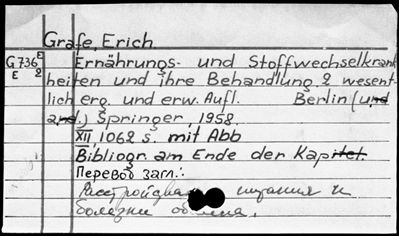 Grafe, Erich
G736 E
E 2
Ernährungs- und Stoffwechselkrank
heiten und ihre Behandlung 2 wesent-
lich erg. und erw. Aufl. Berlin (und
and.) Springer, 1958.
XII, 1062 s. mit Abb
Bibliogr. am Ende der Kapitel.
Перевод загл.:
питания и
болезни обмена.